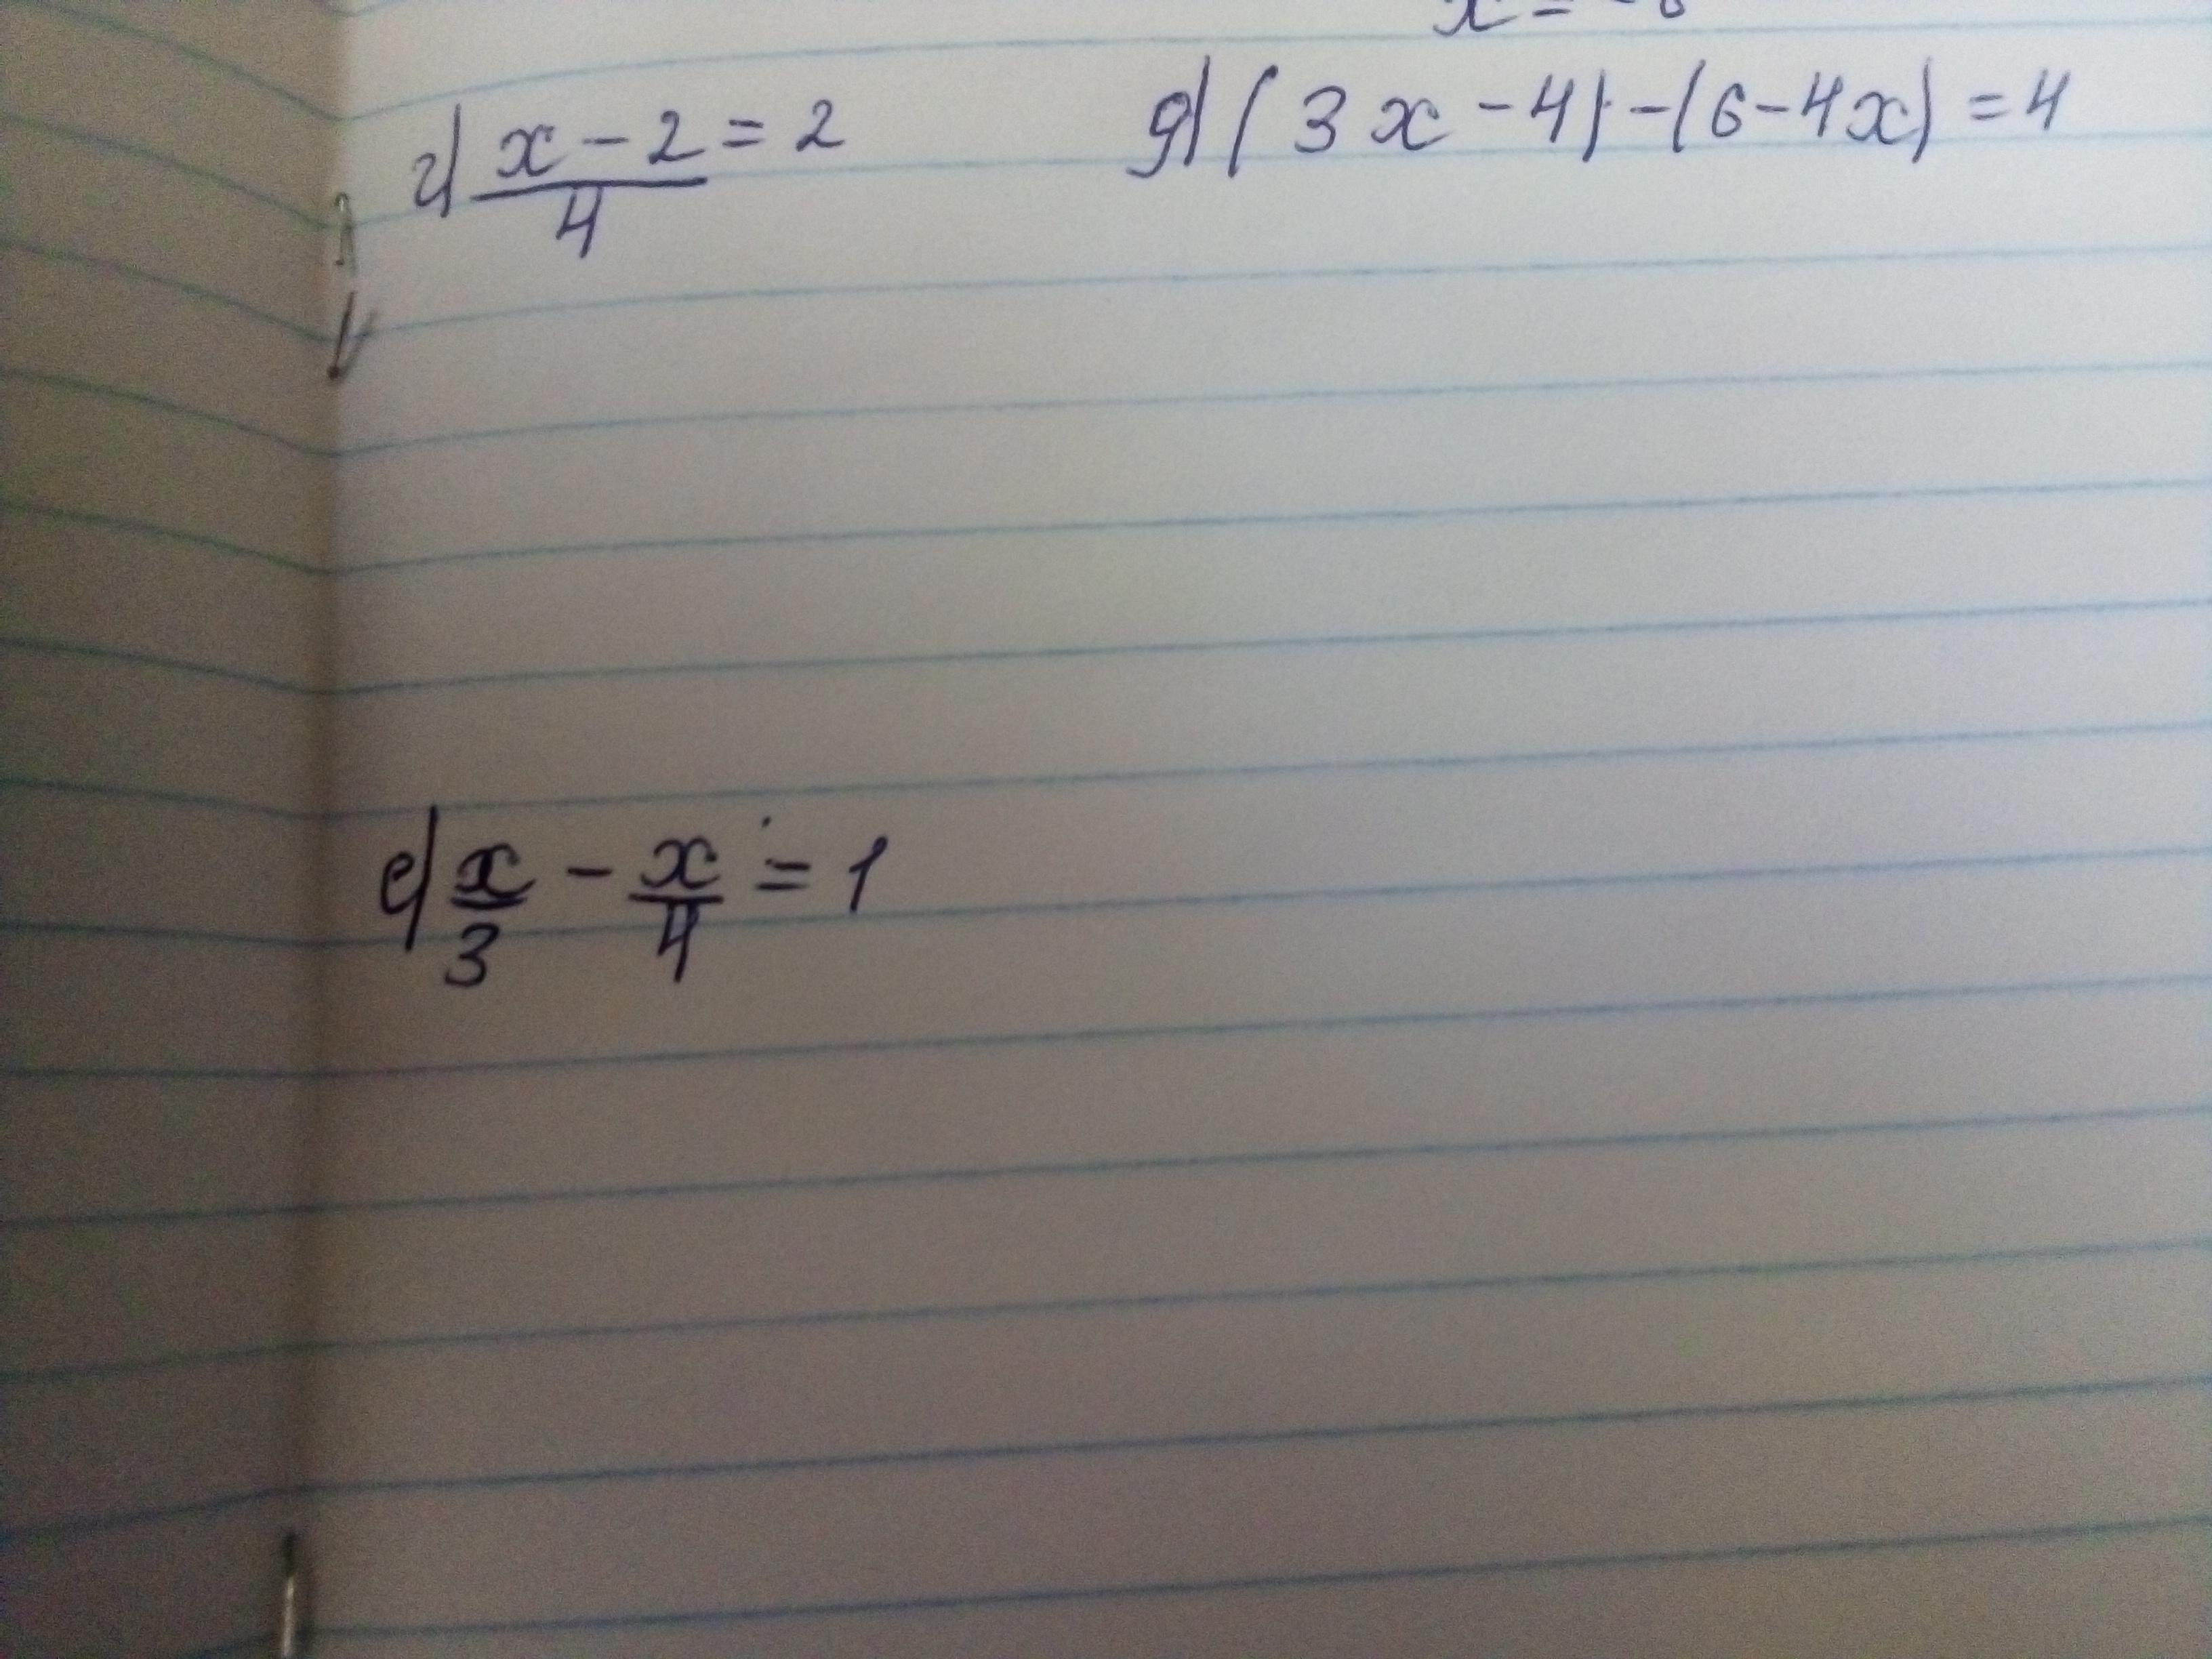 x = -
г) (x - 2)/4 = 2
д) (3x - 4) - (6 - 4x) = 4
е) x/3 - x/4 = 1